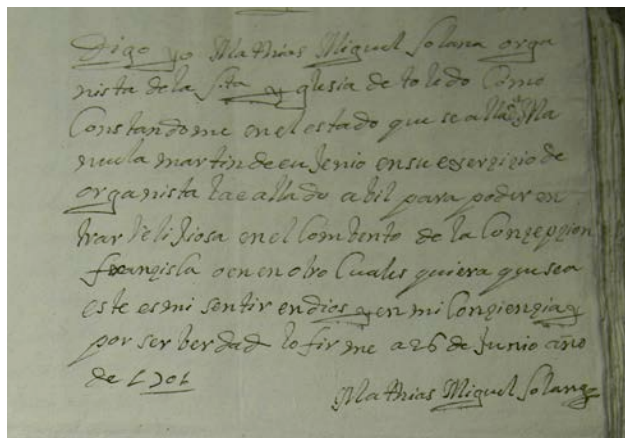 Digo yo Mathias Miguel Solana orga
nista de la Sta yglesia de toledo Como
Constandome en el estado que se alla Da Ma
nuela martin de eujenio en su exerzizio de
organista la e allado abil para poder en
trar Relijiosa en el Combento de la Conzepzion
franzisca o en en otro Cuales quiera que sea
este es mi sentir en dios y en mi Conzienzia y
por ser berdad lo firme a 26 de Junio año
de 1701
Mathias Miguel Solana